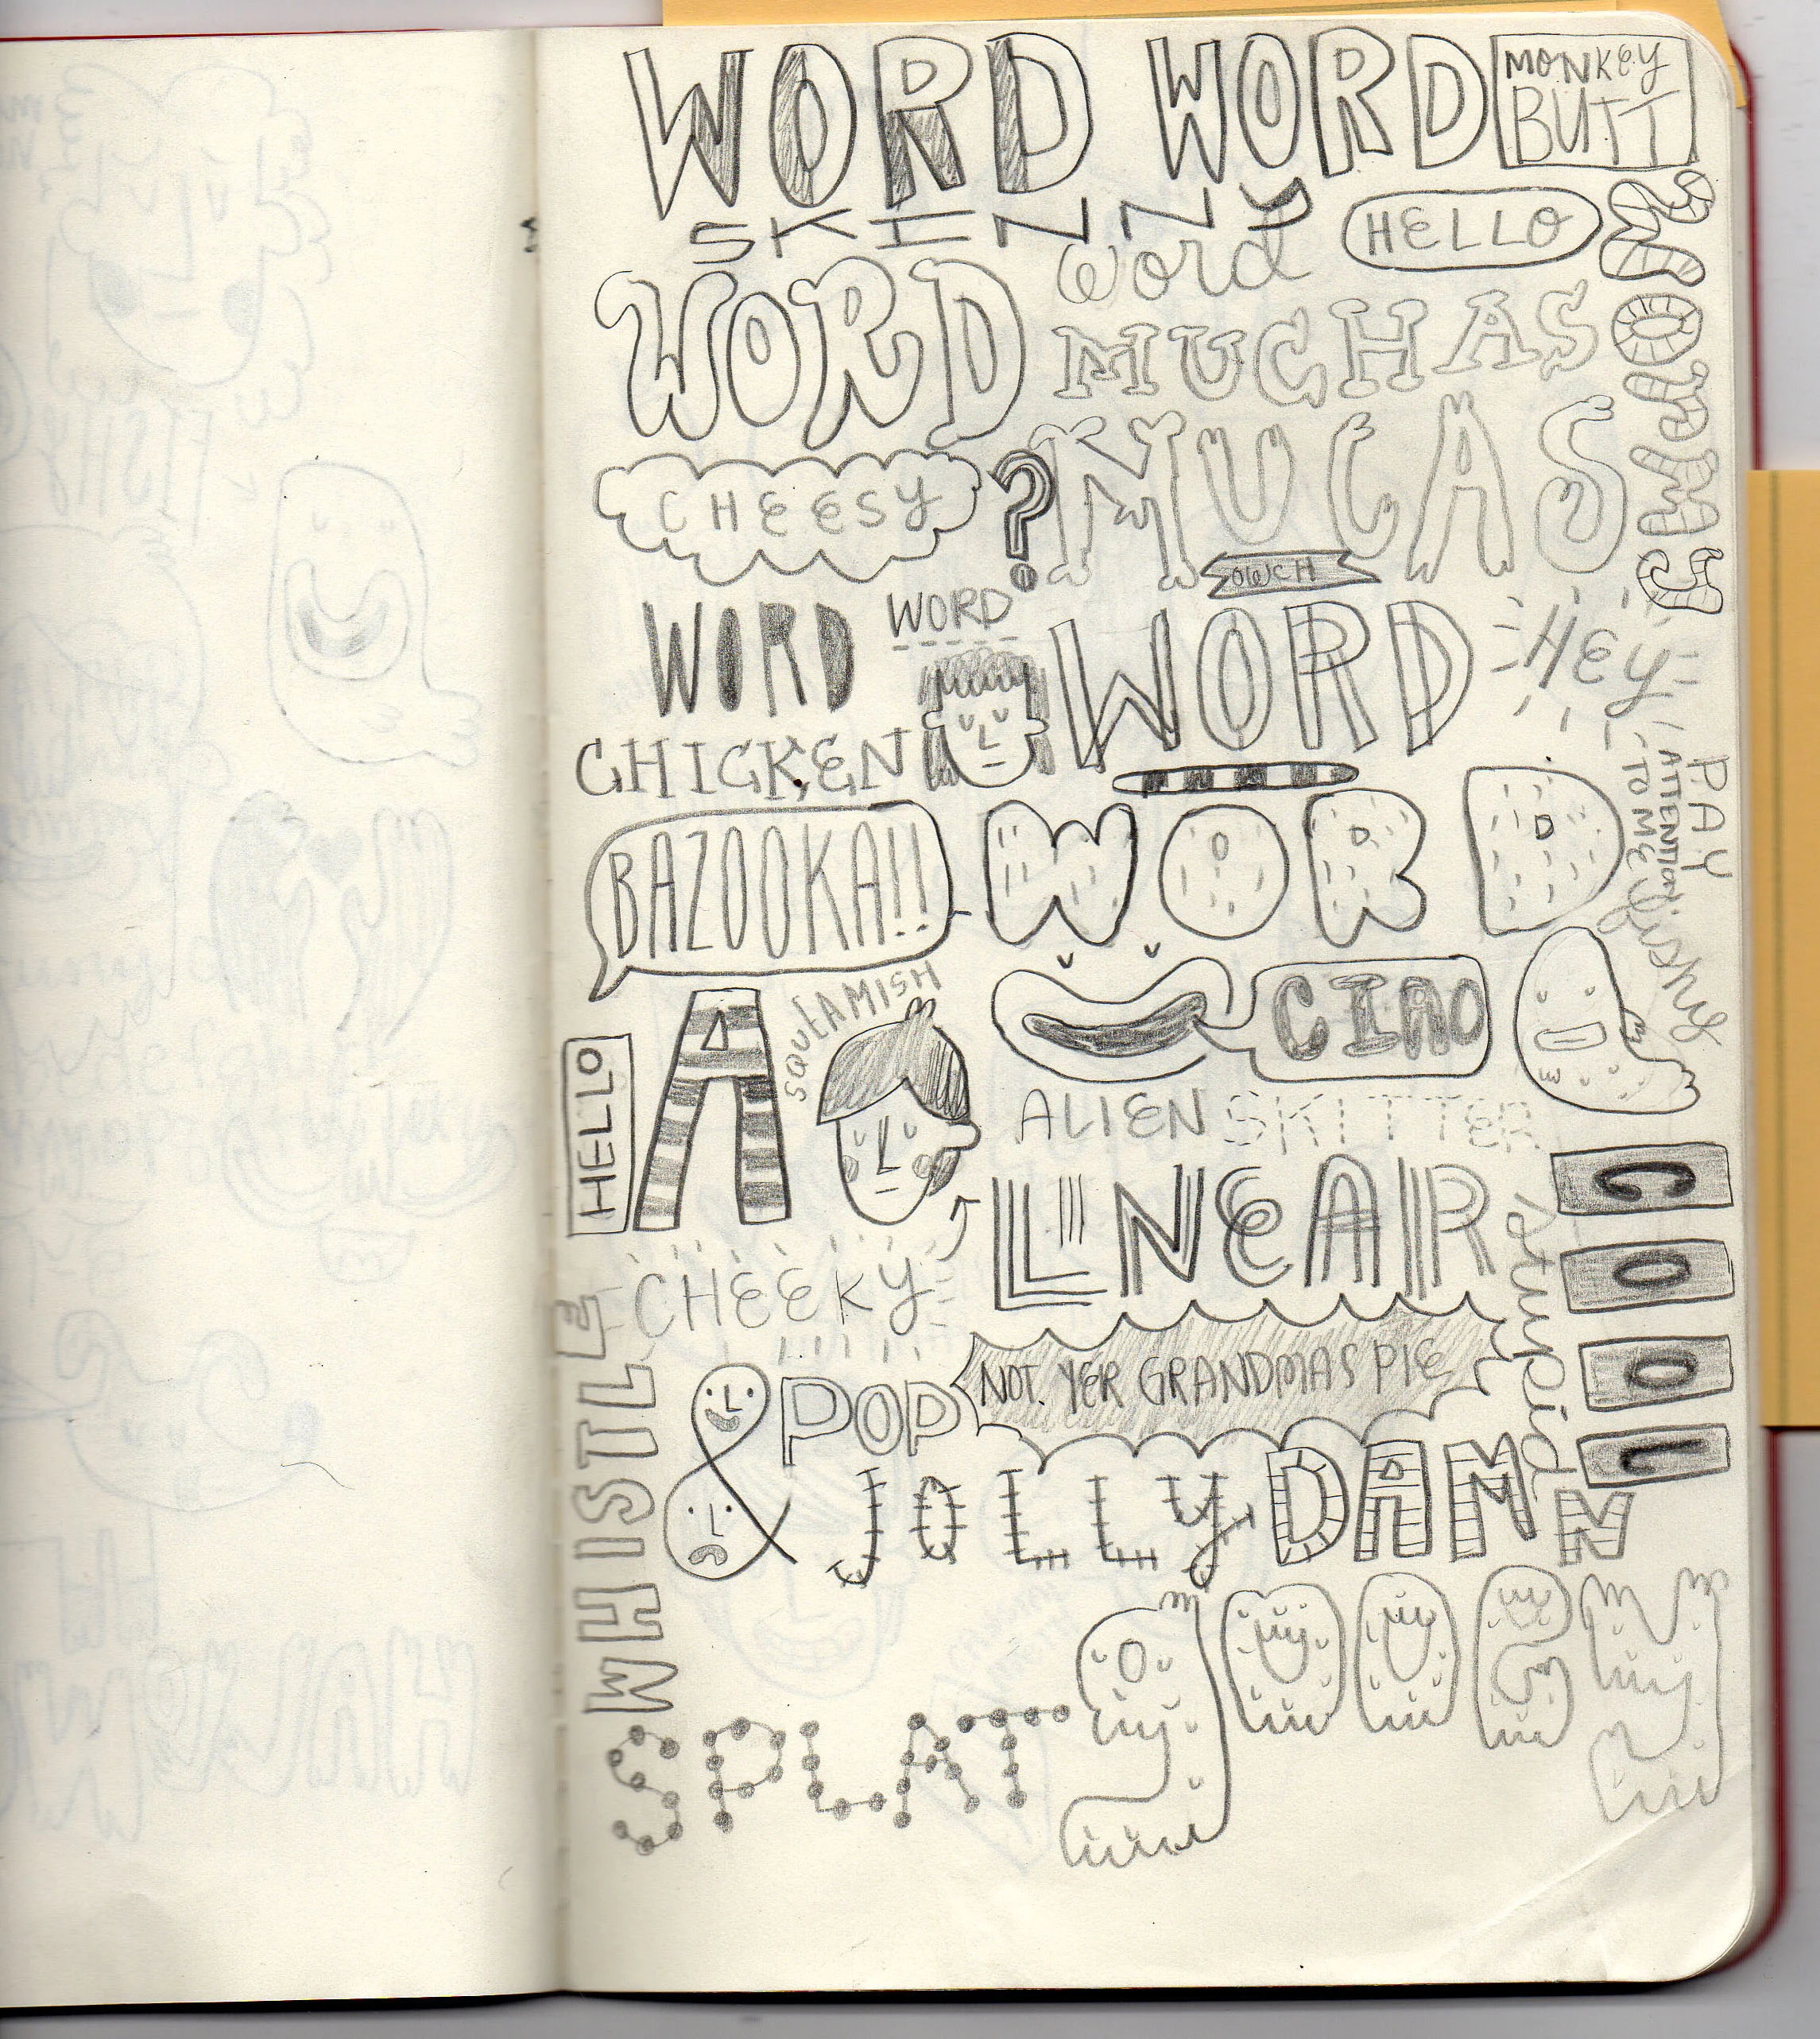 WORD WORD
MONKEY
BUTT
SKINNY
word
HELLO
WORD
MUCHAS
WORMY
CHEESY
?
MUCAS
OWCH
WORD
WORD
WORD
HEY
CHICKEN
PAY
ATTENTION
TO ME
BAZOOKA!!
WORD
fishy
SQUEAMISH
CIAO
HELLO
A
ALIEN SKITTER
LINEAR
COOL
CHEEKY
stupid
NOT. YER GRANDMAS PIE
WHISTLE
& POP
JOLLY DAMN
SPLAT